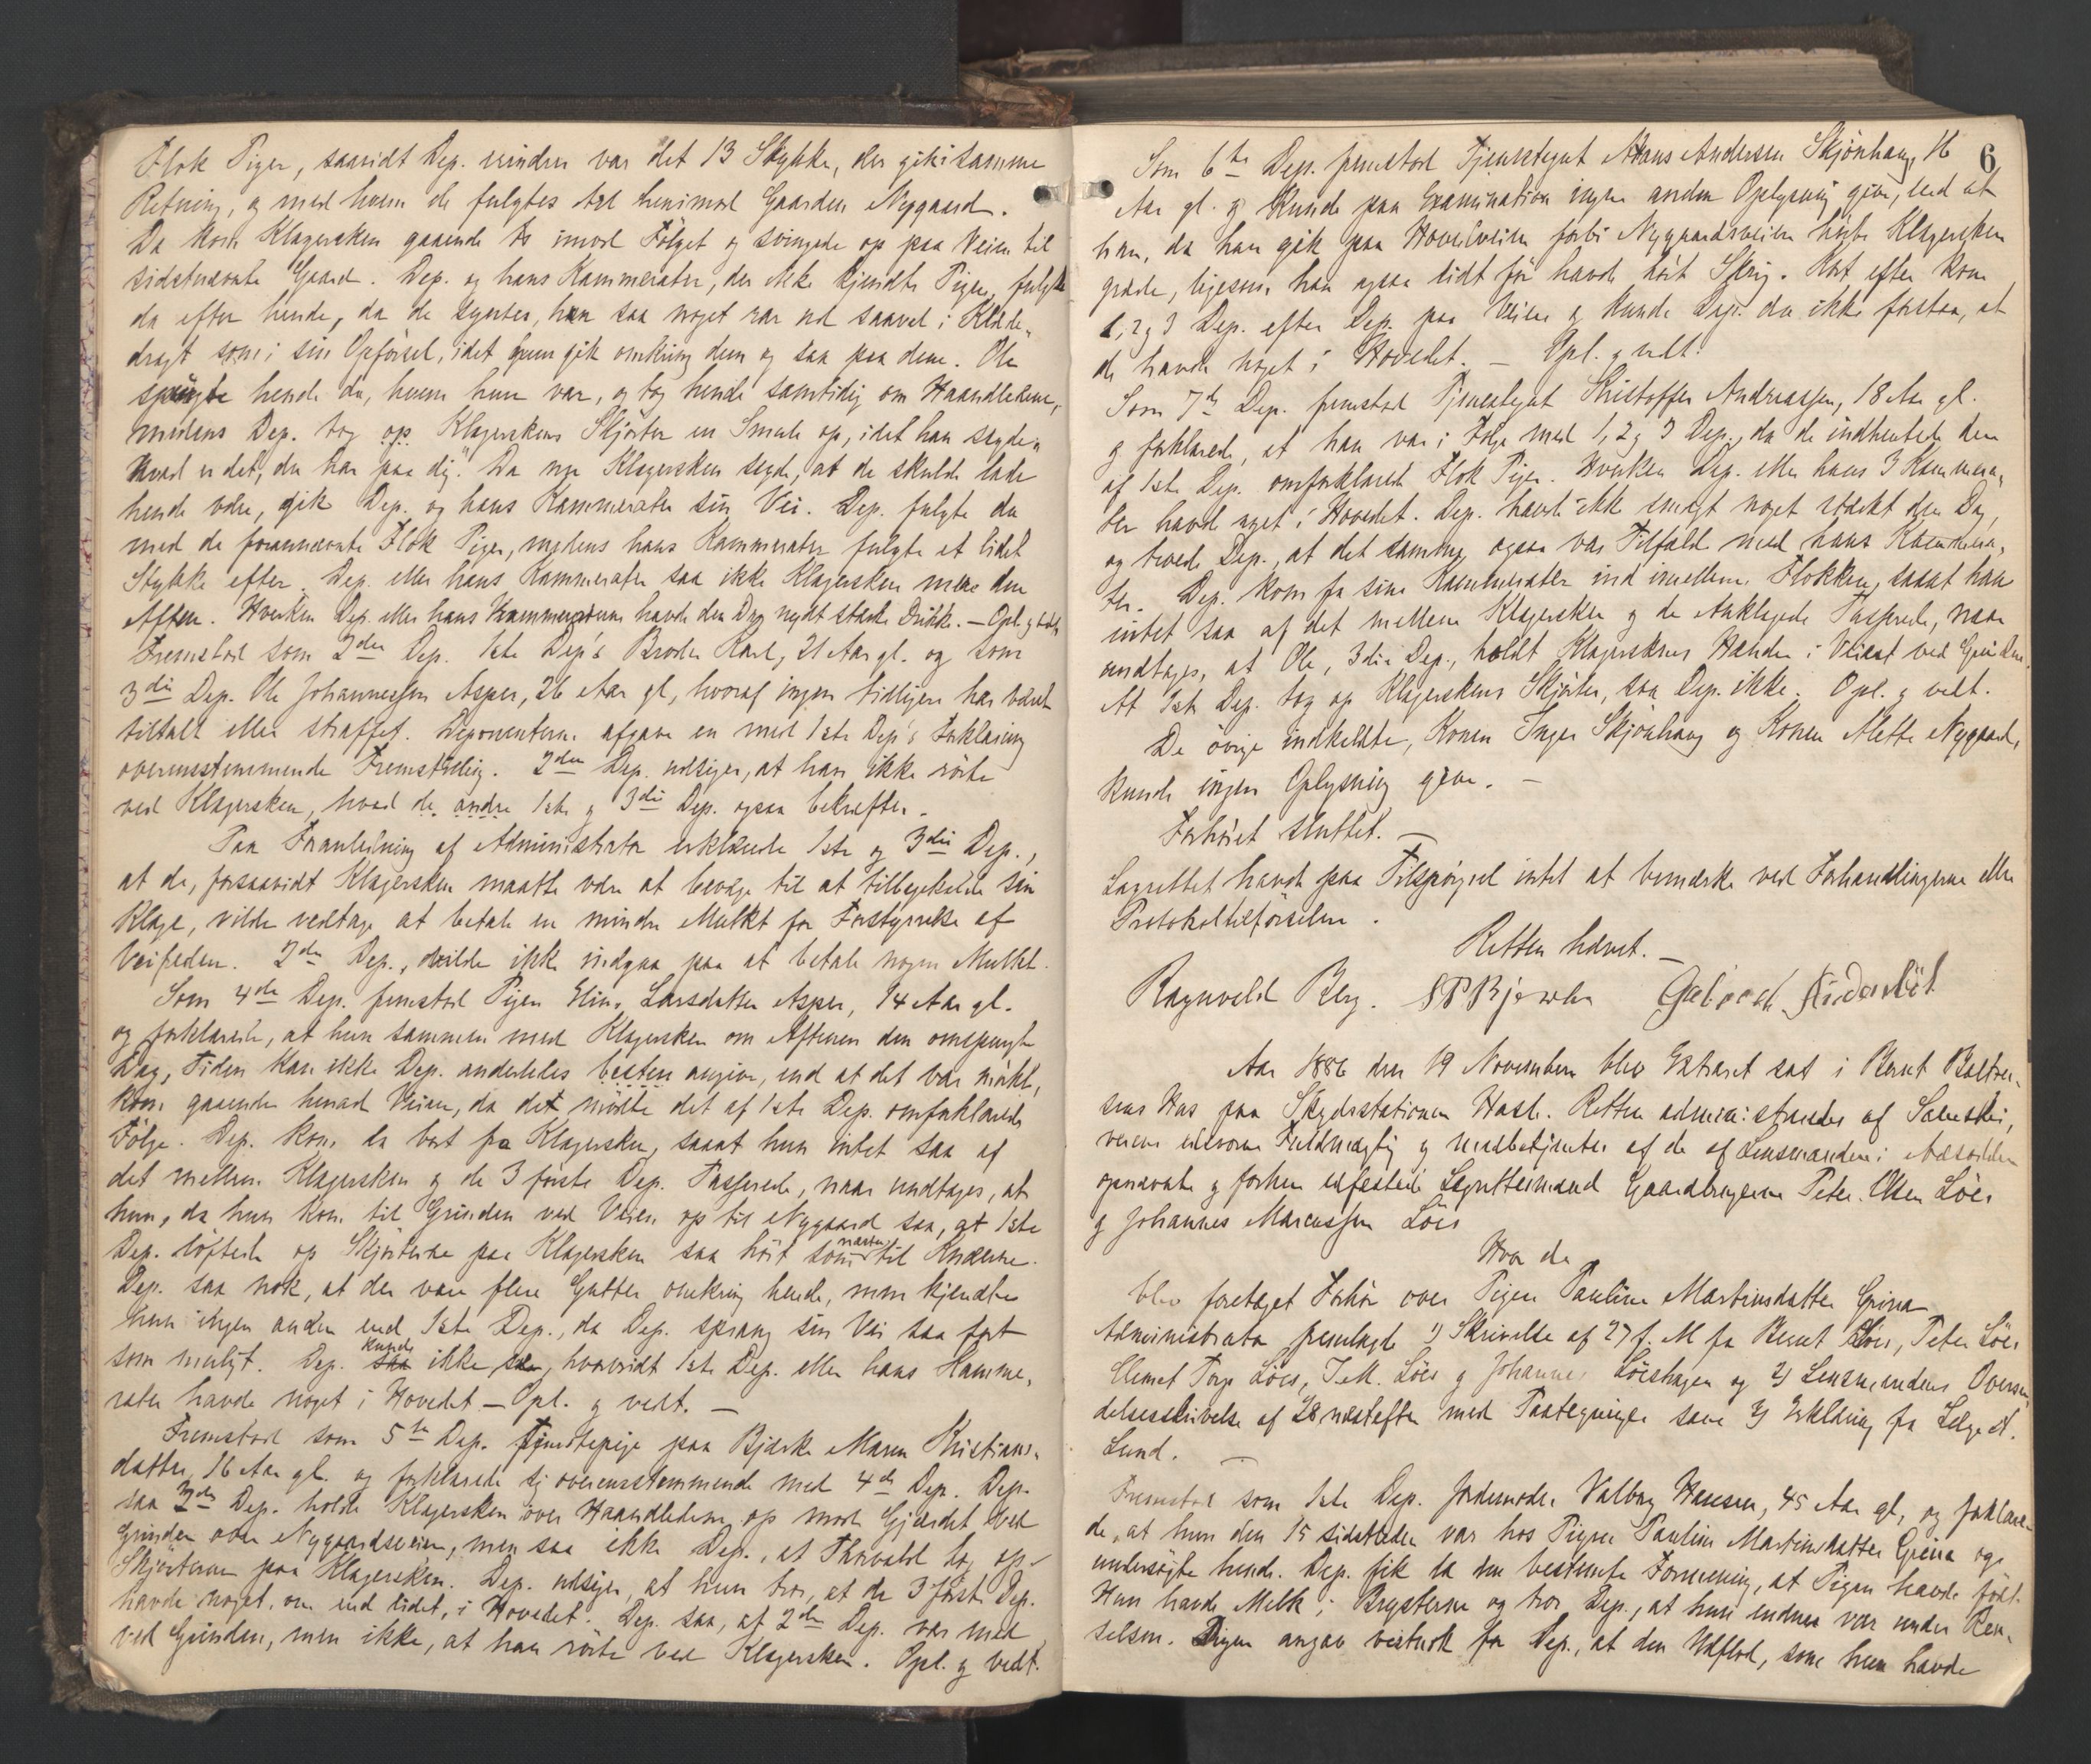 Flok Piger, saavidt Dep. erindrer var det 13 Stykker, der gik i samme
Retning, og med hvem de fulgtes ad henimod Gaarden Nygaard.
Da kom Klagersken gaaende to imod Følget og svingede op paa Veien til
sidstnævnte Gaard. Dep. og hans Kammerater, der ikke kjendte Pigen, fulgte
da efter hende, da de syntes, hun saa noget rar ud saavel i Klæde-
dragt som i sin Opførsel, idet hun gik omkring dem og saa paa dem. Ole
spurgte hende da, hvem hun var, og tog hende samtidig om Haandledene,
medens Dep. tog op Klagerskens Skjørter en Smule op, idet han sagde „
hvad er det, du har paa dig". Da nu Klagersken sagde, at de skulde lade
hende være, gik Dep. og hans Kammerater sin Vei. Dep. fulgte da
med de forannævnte Flok Piger, medens hans Kammerater fulgte et lidet
Stykke efter. Dep. eller hans Kammerater saa ikke Klagersken mere den
Aften. Hverken Dep. eller hans Kammerater havde den Dag nydt stærke Drikke. — Opl. og vedt.
Fremstod som 2den Dep. 1ste Dep's Broder Karl, 21 Aar gl. og som
3die Dep. Ole Johannessen Asper, 26 Aar gl, hvoraf ingen tidligere har været
tiltalt eller straffet. Deponenterne afgave en med 1ste Dep's Forklaring
overensstemmende Fremstilling. 2den Dep. udsiger, at han ikke rørte
ved Klagersken, hvad de andre 1ste og 3die Dep. ogsaa bekræfter.
Paa Foranledning af Administrator erklærede 1ste og 3die Dep.,
at de, forsaavidt Klagersken maatte være at bevæge til at tilbagekalde sin
Klage, vilde vedtage at betale en mindre Mulkt for Forstyrrelse af
Veifreden. 2den Dep., vilde ikke indgaa paa at betale nogen Mulkt.
Som 4de Dep. fremstod Pigen Eline Larsdatter Asper, 14 Aar gl.
og forklarede, at hun sammen med Klagersken om Aftenen den omspurgte
Dag, Tiden kan ikke Dep. anderledes besten angive, end at det var mørkt,
kom gaaende henad Veien, da det mødte det af 1ste Dep. omforklarede
Følge. Dep. kom da bort fra Klagersken, saaat hun intet saa af
det mellem Klagersken og de 3 første Dep. Passerede, naar undtages, at
hun, da hun kom til Grinden ved Veien op til Nygaard saa, at 1ste
Dep. løftede op Skjørterne paa Klagersken saa høit som næsten til Knæerne.
Dep. saa nok, at der vare flere Gutter omkring hende, men kjendte
hun ingen anden end 1ste Dep., da Dep. sprang sin Vei saa fort
som muligt. Dep. kunde ikke se, hvorvidt 1ste Dep. eller hans Kamme-
rater havde noget i Hovedet. — Opl. og vedt. —
Fremstod som 5te Dep. Tjenstepige paa Bjerke Maren Kristians-
datter, 16 Aar gl. og forklarede sig overensstemmende med 4de Dep. Dep.
saa 3die Dep. holde Klagersken over Haandledene op mod Gjærdet ved
Grinden over Nygaardsveien, men saa ikke Dep., at Thorvald tog op
Skjørterne paa Klagersken. Dep. udsiger, at hun tror, at de 3 første Dep.
havde noget, om end lidet, i Hovedet. Dep. saa, at 2den Dep. var med
ved Grinden, men ikke, at han rørte ved Klagersken. Opl. og vedt.
6
Som 6te Dep. fremstod Tjenstegut Hans Andersen Skjønhaug 16
Aar gl. og kunde paa Examination ingen anden Oplysning give, end at
han, da han gik paa Hovedveien forbi Nygaardsveien hørte Klagersken
græde, ligesom han ogsaa lidt før havde hørt Skrig. Kort efter kom
1, 2 og 3 Dep. efter Dep. paa Veien og kunde Dep. da ikke forstaa, at
de havde noget i Hovedet. — Opl. og vedt.
Som 7de Dep. fremstod Tjenstegut Kristoffer Andreassen, 18 Aar gl.
og forklarede, at han var i Følge med 1, 2 og 3 Dep., da de indhentede den
af 1ste Dep. omforklarede Flok Piger. Hverken Dep. eller hans 3 Kammera-
ter havde noget i Hovedet. Dep. havde ikke smagt noget stærkt den Dag,
og troede Dep., at det samme ogsaa var Tilfælde med hans Kammera-
ter. Dep. kom fra sine Kammerater ind imellem Flokken, saaat han
intet saa af det mellem Klagersken og de Anklagede Passerede, naar
undtages, at Ole, 3die Dep., holdt Klagerskens Hænder i Veiret ved Grinden.
At 1ste Dep. tog op Klagerskens Skjørter, saa Dep. ikke. Opl. og vedt.
De øvrige indkaldte, Konen Inger Skjønhaug og Konen Mette Nygaard,
kunde ingen Oplysning give. —
Forhøret sluttet. —
Lagrettet havde paa Tilspørgsel intet at bemærke ved Forhandlingerne eller
Protokoltilførselen.
Retten hævet. —
Ragnvald Berg. Gabriel
Aar 1886 den 19 November blev Extraret sat i Bernt Baltser-
sens Hus paa Skydsstationen Hasle. Retten administreredes af Sorenskri-
verens edsvorne Fuldmægtig og medbetjentes af de af Lensmanden i Næsodden
opnævnte og forhen edfæstede Lagrettesmænd Gaardbrugerne Peter Olsen Löes
og Johannes Marcussen Löes
Hvor da
blev foretaget Forhør over Pigen Pauline Martinsdatter Grina
Administrator fremlagde 1) Skrivelse af 27 f. M fra Bernt Löes, Peter Löes
Clemet Torp Löes, J. M. Löes og Johannes Löeshagen og 2) Lensmandens Oversen-
delsesskrivelse af 28 næstefter med Paategninger samt 3) Erklæring fra Læge A.
Lund. —
Fremstod som 1ste Dep. Jordemoder Valborg Hansen, 45 Aar gl, og forklare-
de, at hun den 15 sidstleden var hos Pigen Pauline Martinsdatter Grina og
undersøgte hende. Dep. fik da den bestemte Formening, at Pigen havde født.
Hun havde Melk i Brysterne og tror Dep., at hun endnu var under Ren-
selsen. Pigen angav vistnok for Dep., at den Udflod, som hun havde